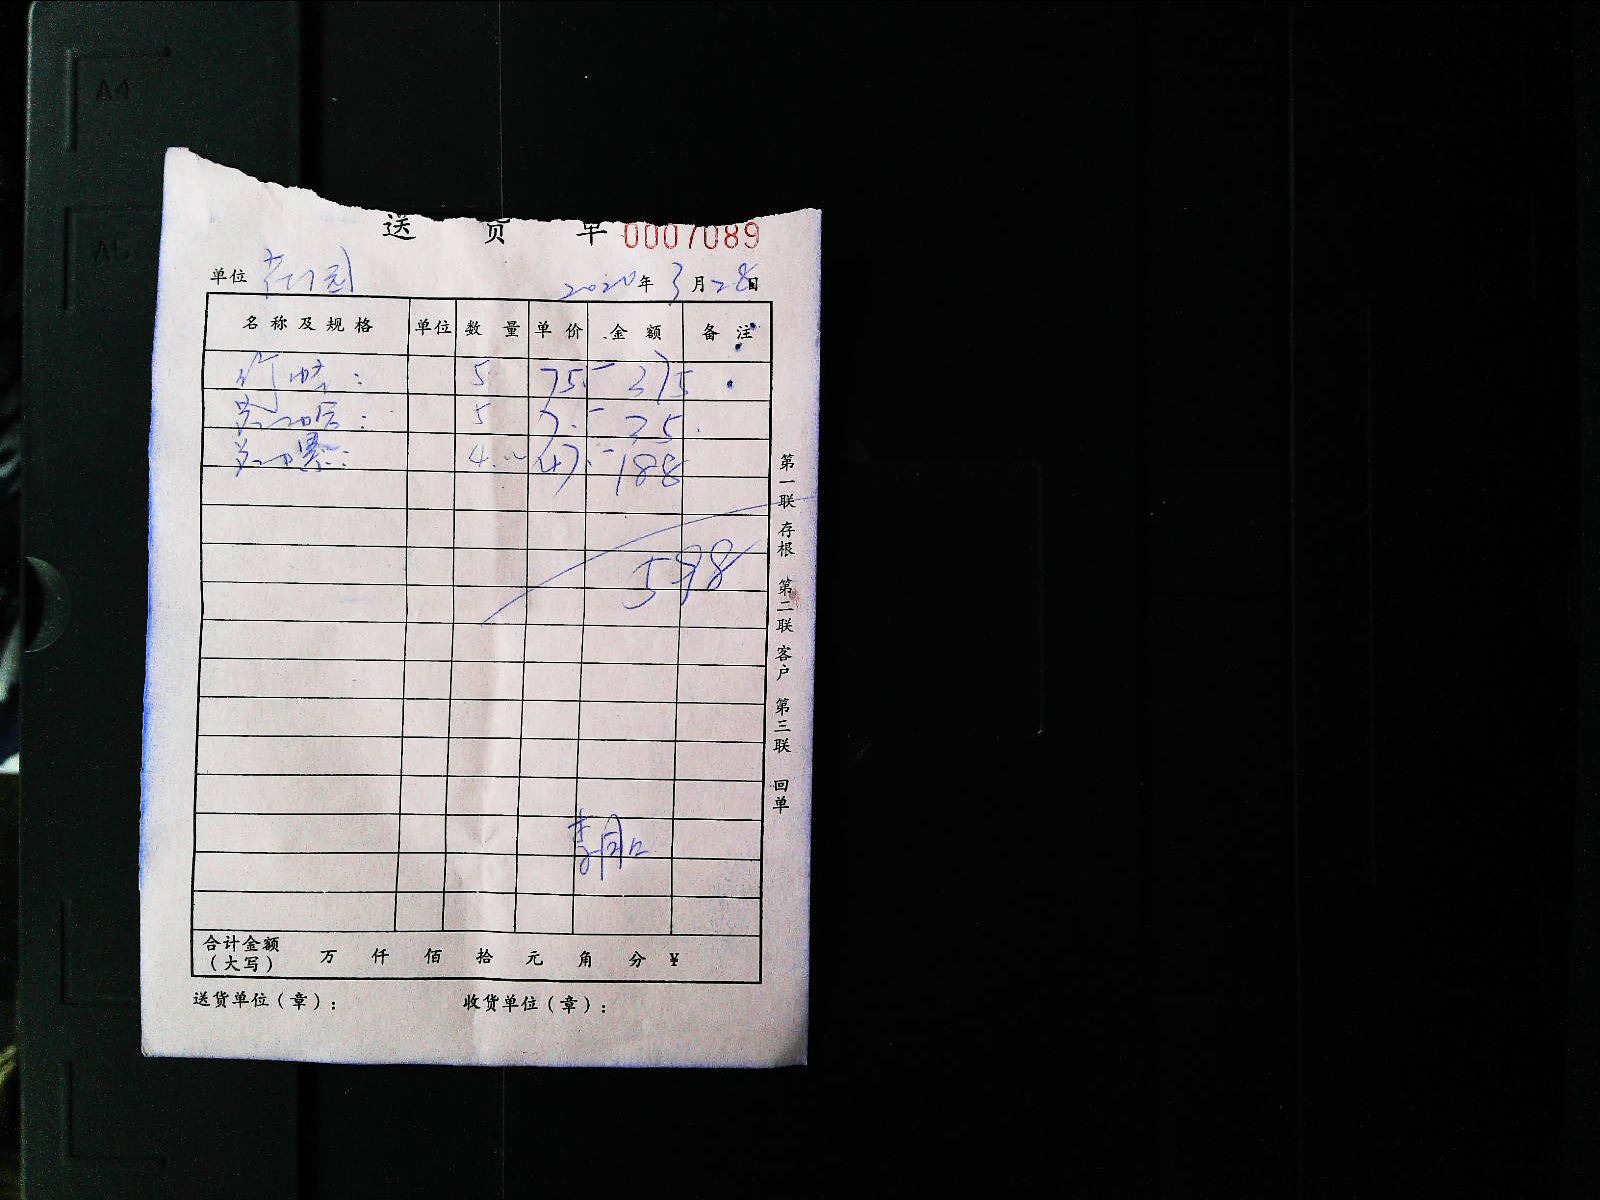 A4
A5
送 货 单 0007089
单位 花园 2020年3月28日
名称及规格 单位 数量 单价 金额 备注
5 75.- 375
5 7.- 35
4 47.- 188
598
合计金额（大写） 万 仟 佰 拾 元 角 分 ¥
送货单位（章）： 收货单位（章）：
第一联 存根 第二联 客户 第三联 回单